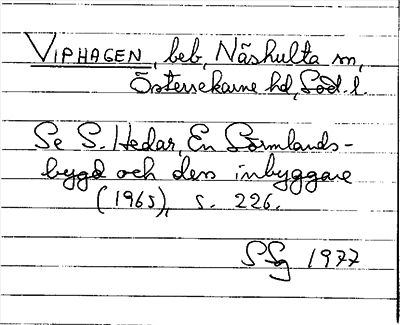 VIPHAGEN, beb, Näshulta sn,
Österrekarne hd, Söd. l.
Se S. Hedar, En Sörmlands-
bygd och dess inbyggare
(1965), s. 226.
SSg 1977